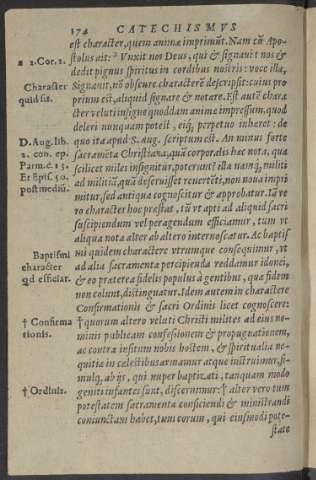 174 CATECHISMVS
est character, quem animæ imprimūt. Nam cū Apo-
a 2. Cor. 1. stolus ait: ª Vnxit nos Deus, qui & signauit nos &
dedit pignus spiritus in cordibus nostris: voce illa,
Character Signauit, nō obscure characterē descripsit: cuius pro
quid sit. prium est, aliquid signare & notare. Est autē chara
cter veluti insigne quoddam animæ impressum, quod
deleri nunquam potest, eiq́, perpetuo inhæret: de
D. Aug. lib. quo ita apud S. Aug. scriptum est. An minus forte
2. con. ep. sacramēta Christiana, quā corporalis hec nota, qua
Parm. c. 13. scilicet miles insignitur, poterunt? illa namq́, militi
Et Epist. 50. ad militiā, quā deseruisset reuertēti, non noua impri
post mediū. mitur, sed antiqua cognoscitur & approbatur. Iā ve
ro character hoc præstat, tū vt apti ad aliquid sacri
suscipiendum vel peragendum efficiamur, tum vt
aliqua nota alter ab altero internoscatur. Ac baptis
Baptismi mi quidem charactere vtrumque consequimur, vt
character ad alia sacramenta percipienda reddamur idonei,
qd efficiat. & eo præterea fidelis populus à gentibus, qua fidem
non colunt, distinguatur. Idem autem in charactere
Confirmationis & sacri Ordinis licet cognoscere:
† Confirma † quorum altero veluti Christi milites ad eius no-
tionis. minis publicam confessionem & propugnationem,
ac contra insitum nobis hostem, & spiritualia ne-
quitiæ in cœlestibus armamur atque instruimur, si-
mulq́, ab ijs, qui nuper baptizati, tanquam modo
† Ordinis. geniti infantes sunt, discernimur: † alter vero tum
potestatem sacramenta conficiendi & ministrandi
coniunctam habet, tum eorum, qui eiusmodi pote-
state